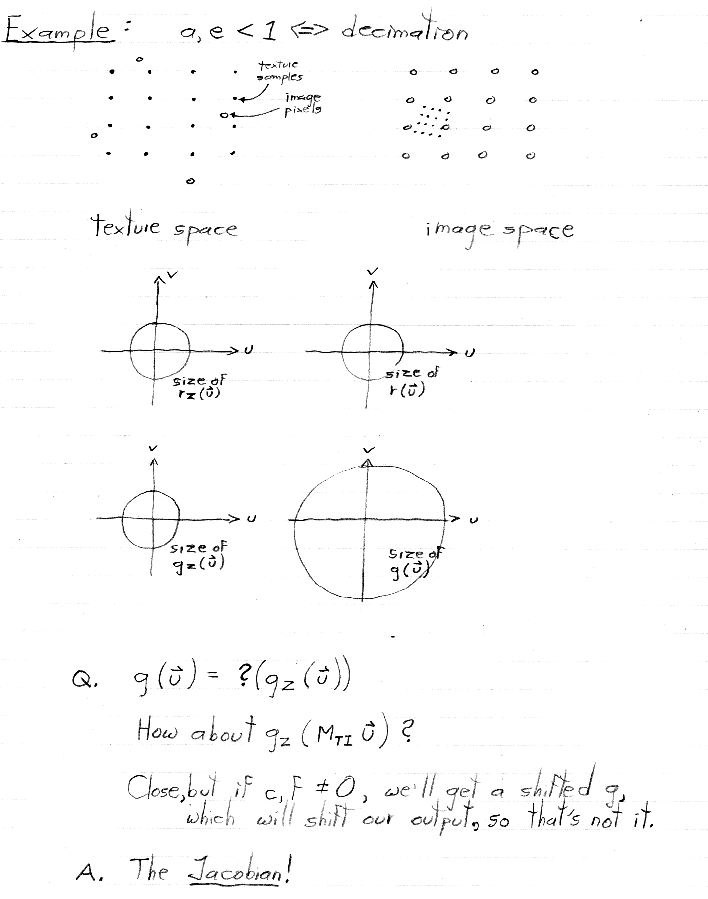 Example: a, e < 1 <=> decimation
texture
samples
image
pixels
texture space
image space
v
u
size of
rz(u⃗)
v
u
size of
r(u⃗)
v
u
size of
gz(u⃗)
v
u
size of
g(u⃗)
Q. g(u⃗) = ?(gz(u⃗))
How about gz(MTI u⃗)?
Close, but if c, F ≠ 0, we'll get a shifted g,
which will shift our output, so that's not it.
A. The Jacobian!